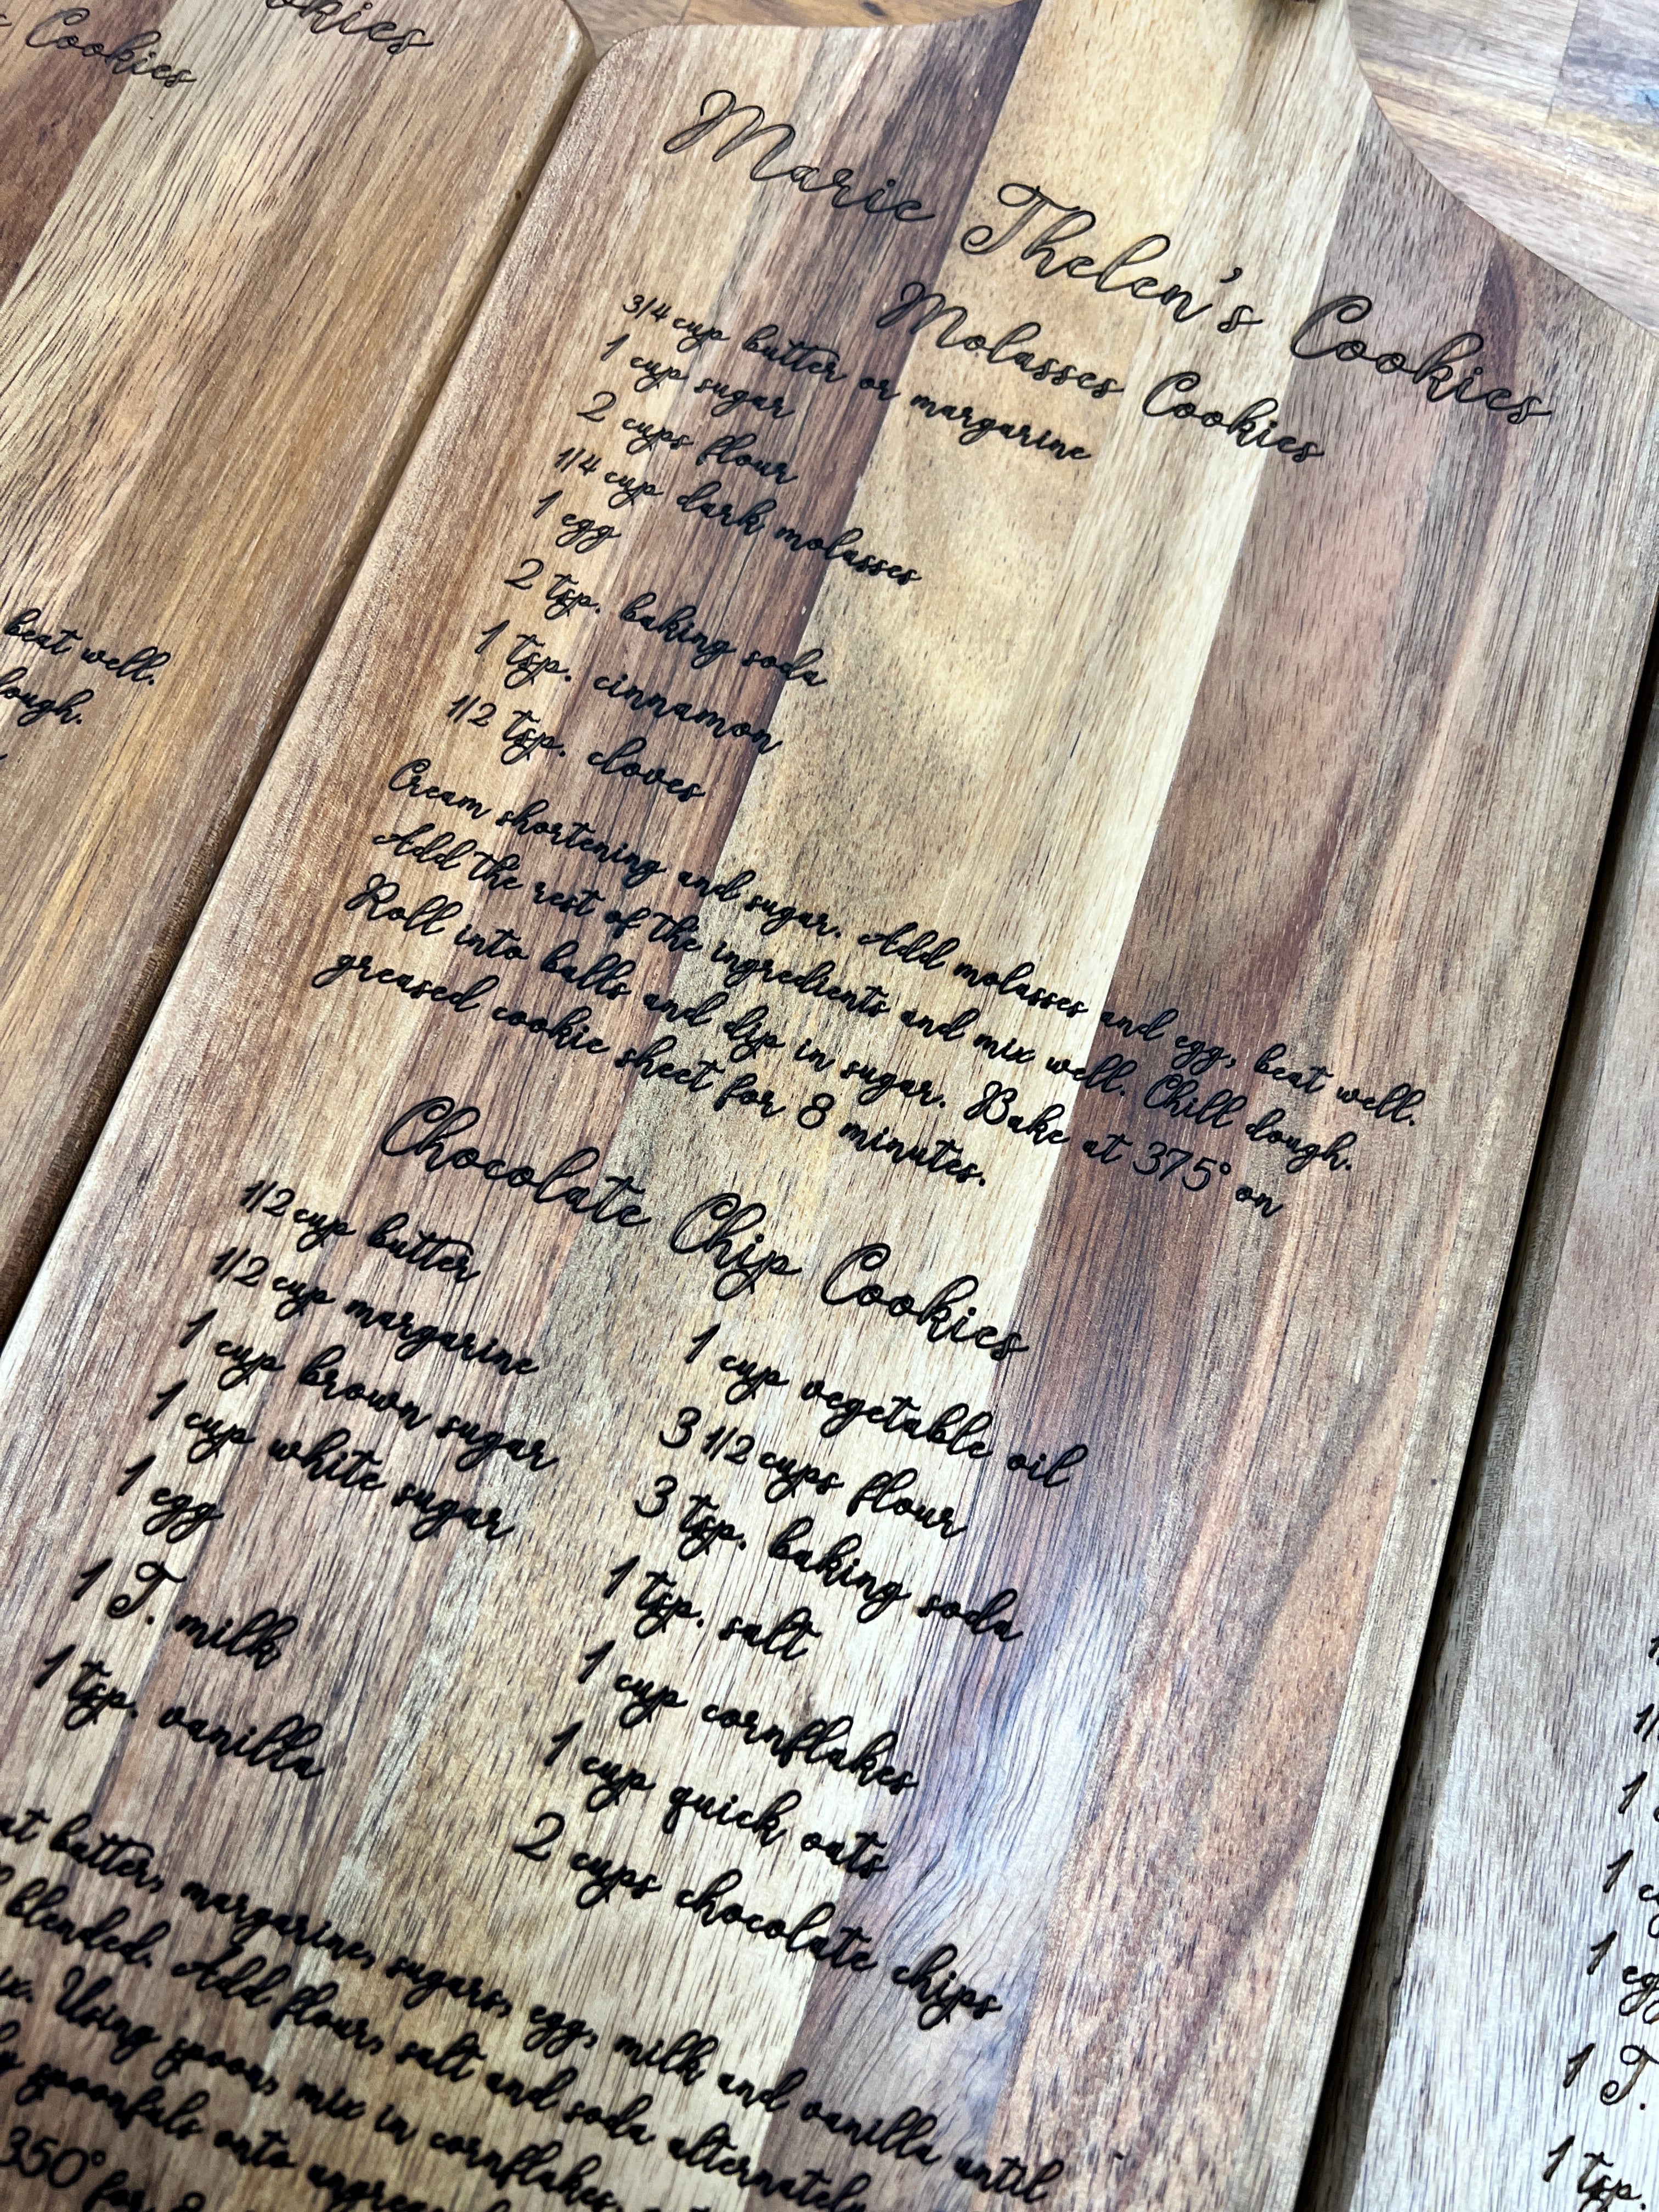 Cookies
Cookies
beat well.
Marie Thelen's Cookies
Molasses Cookies
3/4 cup butter or margarine
1 cup sugar
2 cups flour
1/4 cup dark molasses
1 egg
2 tsp. baking soda
1 tsp. cinnamon
1/2 tsp. cloves
Cream shortening and sugar. Add molasses and egg, beat well.
Add the rest of the ingredients and mix well. Chill dough.
Roll into balls and dip in sugar. Bake at 375° on
greased cookie sheet for 8 minutes.
Chocolate Chip Cookies
1/2 cup butter
1/2 cup margarine
1 cup brown sugar
1 cup white sugar
1 egg
1 T. milk
1 tsp. vanilla
1 cup vegetable oil
3 1/2 cups flour
3 tsp. baking soda
1 tsp. salt
1 cup cornflakes
1 cup quick oats
2 cups chocolate chips
butter, margarine, sugars, egg, milk and vanilla until
blended. Add flour, salt and soda alternately
Using spoon, mix in cornflakes,
spoonfuls onto
350° for 8
1
1
1 egg
1 T.
1 tsp.